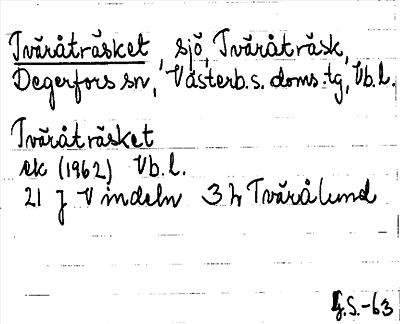 Tväråträsket, sjö, Tväråträsk,
Degerfors sn, Västerb.s. doms.tg, Vb.l.
Tväråträsket
ek (1962) Vb.l.
21 J Vindeln 3 h Tvärålund
G.S.-63